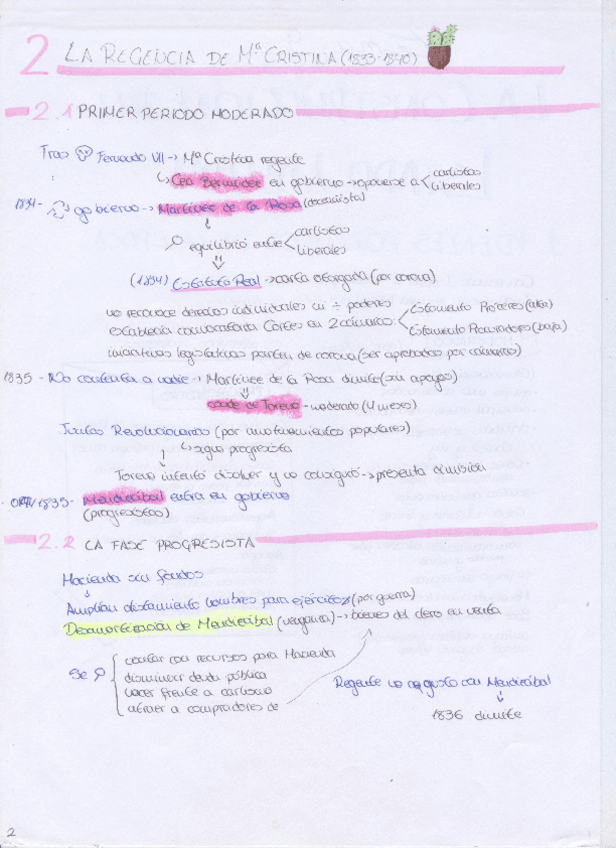 2 LA REGENCIA DE Mª CRISTINA (1833-1840)
2.1 PRIMER PERIODO MODERADO
Tras Fernando VII → Mª Cristina regente
↳ Cea Bermúdez en gobierno → oponerse a
carlistas
liberales
1834- gobierno → Martínez de la Rosa (doceañista)
equilibrio entre
carlistas
liberales
(1834) Estatuto Real → carta otorgada (por corona)
no reconoce derechos individuales ni ÷ poderes
establecía convocatoria Cortes en 2 cámaras
Estamento Próceres (alta)
Estamento Procuradores (baja)
iniciativas legislativas parten de corona (ser aprobadas por cámaras)
1835 - No contenta a nadie → Martínez de la Rosa dimite (sin apoyos)
conde de Toreno - moderado (4 meses)
Juntas Revolucionarias (por amotinamientos populares)
↳ signo progresista
Toreno intentó disolver y no consiguió → presenta dimisión
1835- Mendizábal entra en gobierno
(progresista)
2.2 LA FASE PROGRESISTA
Hacienda sin fondos
Amplían alistamiento hombres para ejército (por guerra)
Desamortización de Mendizábal → bienes del clero en venta
se
contar con recursos para Hacienda
disminuir deuda pública
hacer frente a carlismo
atraer a compradores de
Regente no a gusto con Mendizábal
1836 dimite
2